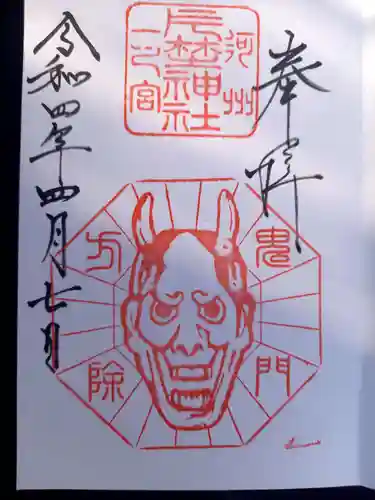 奉拝
河州
片埜神社
一之宮
鬼門
方除
令和四年四月七日